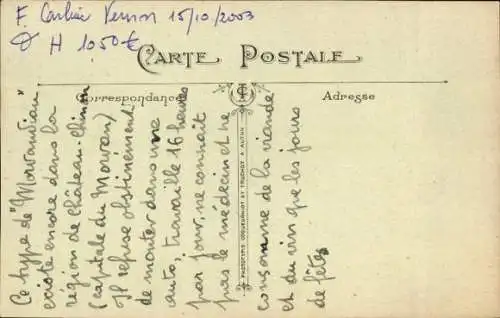 F. Carlier Vernon 15/10/2003
H 1050 €
CARTE POSTALE
Correspondance
Adresse
Ce type de "Morvandiau"
existe encore dans la
région de Château-Chinon
(capitale du Morvan)
Il refuse obstinément
de monter dans une
auto, travaille 16 heures
par jour, ne connaît
pas le médecin et ne
consomme de la viande
et du vin que les jours
de fêtes
PHOTOTYPIE COQUEUGNIOT ET TRUCHOT A AUTUN